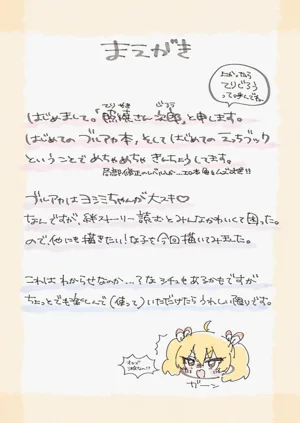 まえがき
よかったら
てりじろう
って呼んでね。
はじめまして。「照焼さん次郎」と申します。
てりやき じろう
はじめてのブルアカ本、そしてはじめてのえっちブック
ということでめちゃめちゃきんちょうしてます。
ブルアカはヨシミちゃんが大スキ♡
なんですが、絆ストーリー読むとみんなかわいくて困った。
ので他にも描きたい!な子を今回描いてみました。
これはわからせなのか…?なシチュもあるかもですが
ちょっとでも楽しんで(使って)いただけたらうれしい限りです。
ガーン